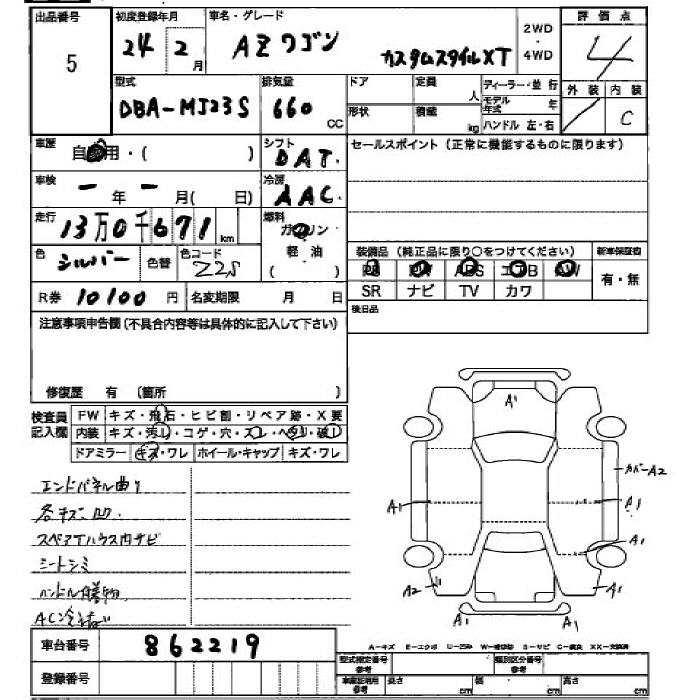 出品番号 初度登録年月 車名・グレード 2WD ・ 4WD 評価点
5 24年 2月 AZワゴン カスタムスタイルXT 4
型式 排気量 ドア 定員 人 ディーラー・並行 外装 内装
DBA-MJ23S 660 CC 形状 積載 kg モデル年式 年 ハンドル 左・右 C
車歴 自家用・( ) シフト DAT セールスポイント (正常に機能するものに限ります)
車検 - 年 - 月( 日) 冷房 AAC
走行 13万0千671 km 燃料 ガソリン 軽油
色 シルバー 色替 色コード Z2S 装備品 (純正品に限り○をつけてください) 新車保証書
PS PW ABS エアB AW 有・無
R券 10100 円 名変期限 月 日 SR ナビ TV カワ
注意事項申告欄 (不具合内容等は具体的に記入して下さい) 後日品
修復歴 有 (箇所 )
検査員記入欄 FW キズ・飛石・ヒビ割・リペア跡・X要
内装 キズ・汚れ・コゲ・穴・スレ・ヘタリ・破れ
ドアミラー キズ・ワレ ホイール・キャップ キズ・ワレ
A1
カバーA2
A1 A1
A1
A2 A1
A1 A1
エンドパネル曲り
各キズ凹
スペアTハウス内サビ
シートシミ
車台番号 862219
A-キズ E-エクボ U-凹み S-サビ C-腐食
登録番号 型式指定番号 参考 類別区分番号 参考
車庫証明用 参考 長さ cm 幅 cm 高さ cm